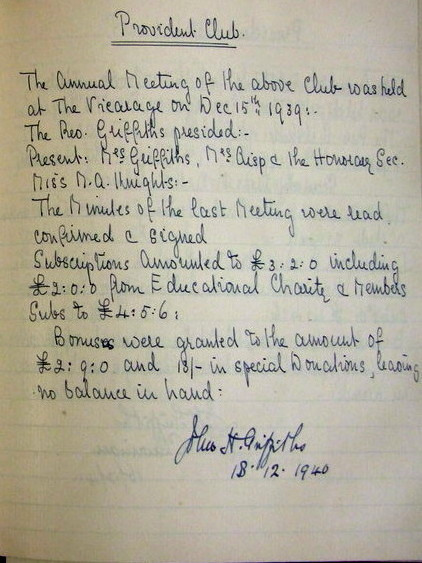 Provident Club.
The Annual Meeting of the above Club was held
at The Vicarage on Dec 15th 1939:-
The Rev. Griffiths presided:-
Present: Mrs Griffiths, Mrs Crisp & the Honorary Sec.
Miss M.A. Knights:-
The Minutes of the last Meeting were read
confirmed & signed
Subscriptions amounted to £3:2:0 including
£2:0:0 from Educational Charity & Members
Subs to £4:5:6:
Bonuses were granted to the amount of
£2:9:0 and 13/- in special Donations, leaving
no balance in hand:
John H. Griffiths
18.12.1940